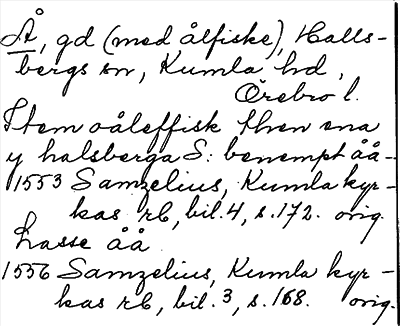 Å, gd (med ålfiske), Halls-
bergs sn, Kumla hd,
Örebro l.
Item oåleffisk then ena
y halsberga S: benempt åå -
1553 Samzelius, Kumla kyr-
kas rb, bil. 4, s. 172. orig.
Lasse åå
1556 Samzelius, Kumla kyr-
kas rb, bil. 3, s. 168. orig.